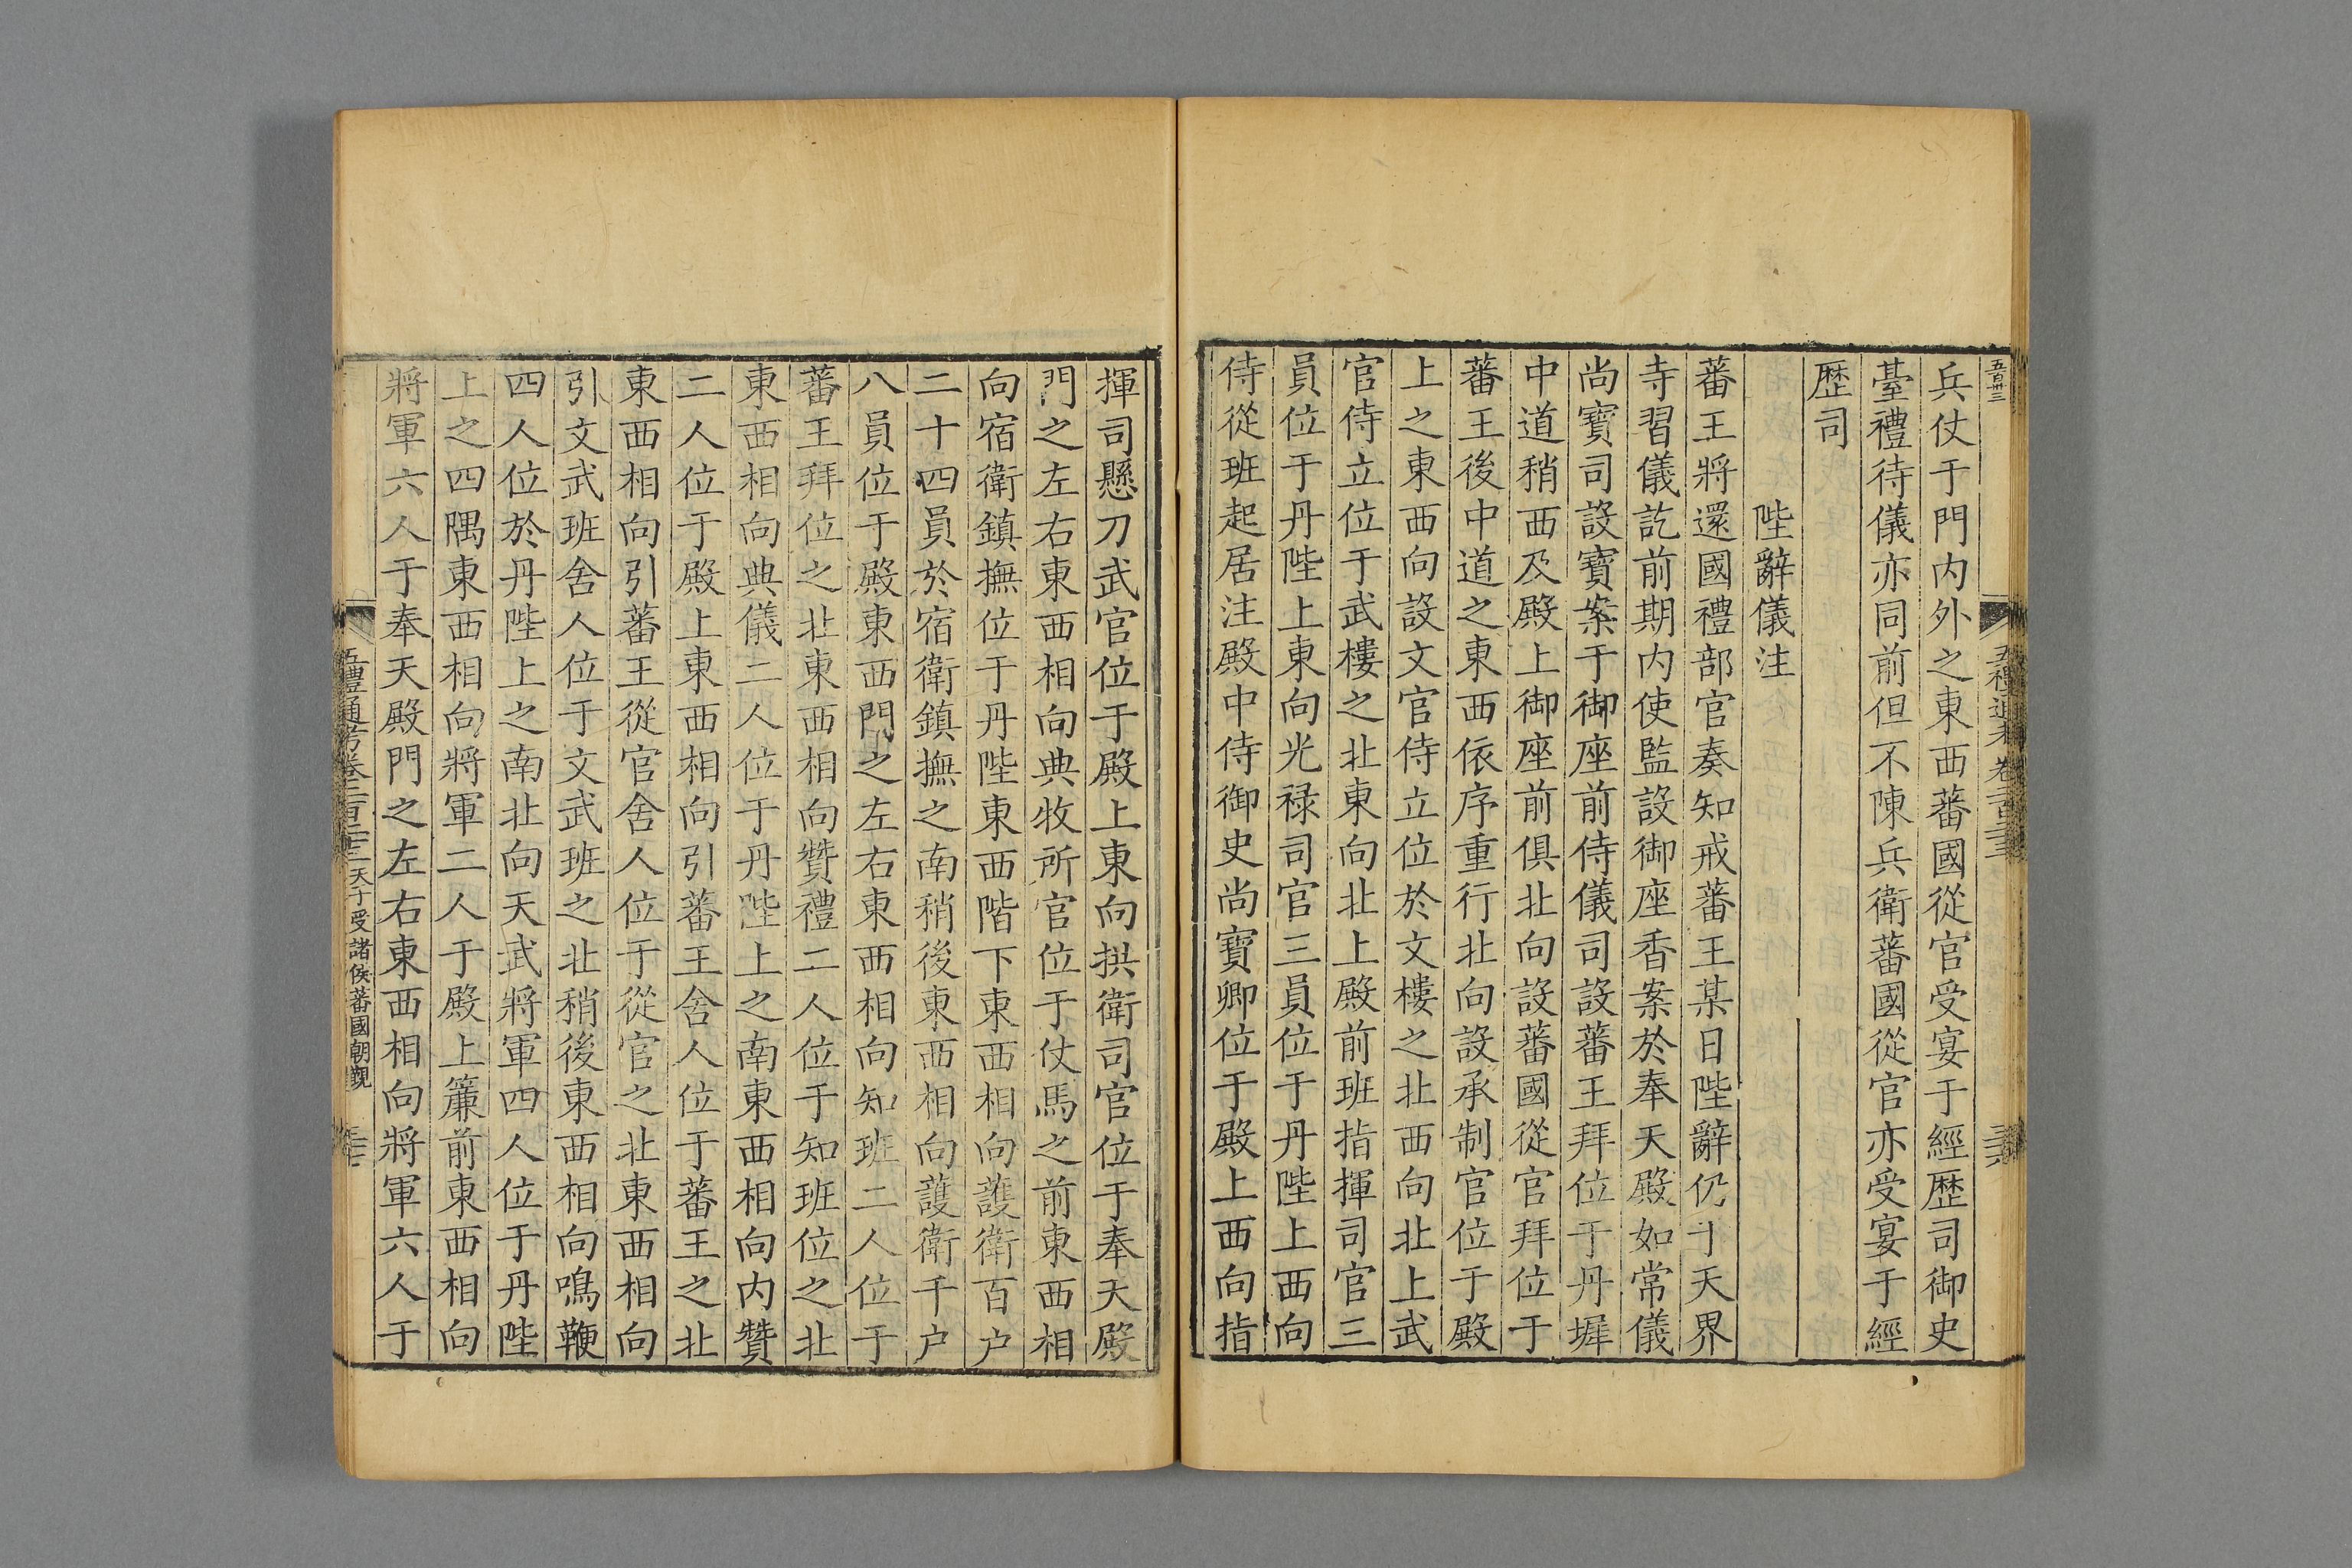 五百卅三
兵仗于門内外之東西蕃國從官受宴于經歷司御史
臺禮待儀亦同前但不陳兵衛蕃國從官亦受宴于經
歷司
陛辭儀注
蕃王將還國禮部官奏知戒蕃王某日陛辭仍于天界
寺習儀訖前期内使監設御座香案於奉天殿如常儀
尚寶司設寶案于御座前侍儀司設蕃王拜位于丹墀
中道稍西及殿上御座前俱北向設蕃國從官拜位于
蕃王後中道之東西依序重行北向設承制官位于殿
上之東西向設文官侍立位於文樓之北西向北上武
官侍立位于武樓之北東向北上殿前班指揮司官三
員位于丹陛上東向光禄司官三員位于丹陛上西向
侍從班起居注殿中侍御史尚寶卿位于殿上西向指
揮司懸刀武官位于殿上東向拱衛司官位于奉天殿
門之左右東西相向典牧所官位于仗馬之前東西相
向宿衛鎮撫位于丹陛東西階下東西相向護衛百户
二十四員於宿衛鎮撫之南稍後東西相向護衛千户
八員位于殿東西門之左右東西相向知班二人位于
蕃王拜位之北東西相向贊禮二人位于知班位之北
東西相向典儀二人位于丹陛上之南東西相向内贊
二人位于殿上東西相向引蕃王舍人位于蕃王之北
東西相向引蕃王從官舍人位于從官之北東西相向
引文武班舍人位于文武班之北稍後東西相向鳴鞭
四人位於丹陛上之南北向天武將軍四人位于丹陛
上之四隅東西相向將軍二人于殿上簾前東西相向
將軍六人于奉天殿門之左右東西相向將軍六人于
五禮通考卷二百二十三 天子受諸侯蕃國朝覲